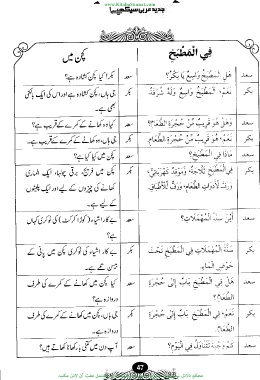 www.KitaboSunnat.com
جدید عربی سیکھیے
فِي الْمَطْبَخِ
کچن میں
سعد
هَلِ الْمَطْبَخُ وَاسِعٌ يَا بَكْرُ؟
سعد
بکر! کیا کچن کشادہ ہے؟
بکر
نَعَمْ، الْمَطْبَخُ وَاسِعٌ وَلَهُ شُرْفَةٌ
بکر
جی ہاں، کچن کشادہ ہے اور اس کی ایک بالکنی
بھی ہے۔
سعد
وَهَلْ هُوَ قَرِيبٌ مِنْ حُجْرَةِ الطَّعَامِ؟
سعد
کیا وہ کھانے کے کمرے کے قریب ہے؟
بکر
نَعَمْ، هُوَ قَرِيبٌ مِنْ حُجْرَةِ الطَّعَامِ
بکر
جی ہاں، وہ کھانے کے کمرے کے قریب ہے۔
سعد
مَاذَا فِي الْمَطْبَخِ؟
سعد
کچن میں کیا کیا ہے؟
بکر
فِي الْمَطْبَخِ ثَلَّاجَةٌ، وَمَوْقِدٌ كَهْرَبَائِيٌّ،
وَرَفٌّ لِأَدَوَاتِ الطَّعَامِ، وَرَفٌّ لِلْأَطْبَاقِ
بکر
کچن میں فریج، برقی چولہا، ایک الماری
کھانے کی چیزوں کے لیے اور ایک پلیٹوں
کے لیے ہے۔
سعد
أَيْنَ سَلَّةُ الْمُهْمَلَاتِ؟
سعد
بے کار اشیاء (کوڑا کرکٹ) کی ٹوکری کہاں
ہے؟
بکر
سَلَّةُ الْمُهْمَلَاتِ فِي الْمَطْبَخِ تَحْتَ
حَوْضِ الْمَاءِ
بکر
بے کار اشیاء کی ٹوکری کچن میں پانی کے
نیچے ہے۔
سعد
هَلْ فِي الْمَطْبَخِ بَابٌ إِلَى حُجْرَةِ
الطَّعَامِ؟
سعد
کیا کچن میں کھانے کے کمرے کی طرف
دروازہ ہے؟
بکر
نَعَمْ، فِي الْمَطْبَخِ بَابٌ إِلَى حُجْرَةِ
الطَّعَامِ
بکر
جی ہاں، کچن میں کھانے کے کمرے کی طرف
دروازہ ہے۔
سعد
كَمْ وَجْبَةً تَتَنَاوَلُ فِي الْيَوْمِ؟
سعد
آپ دن میں کتنی بار کھانا کھاتے ہیں؟
47